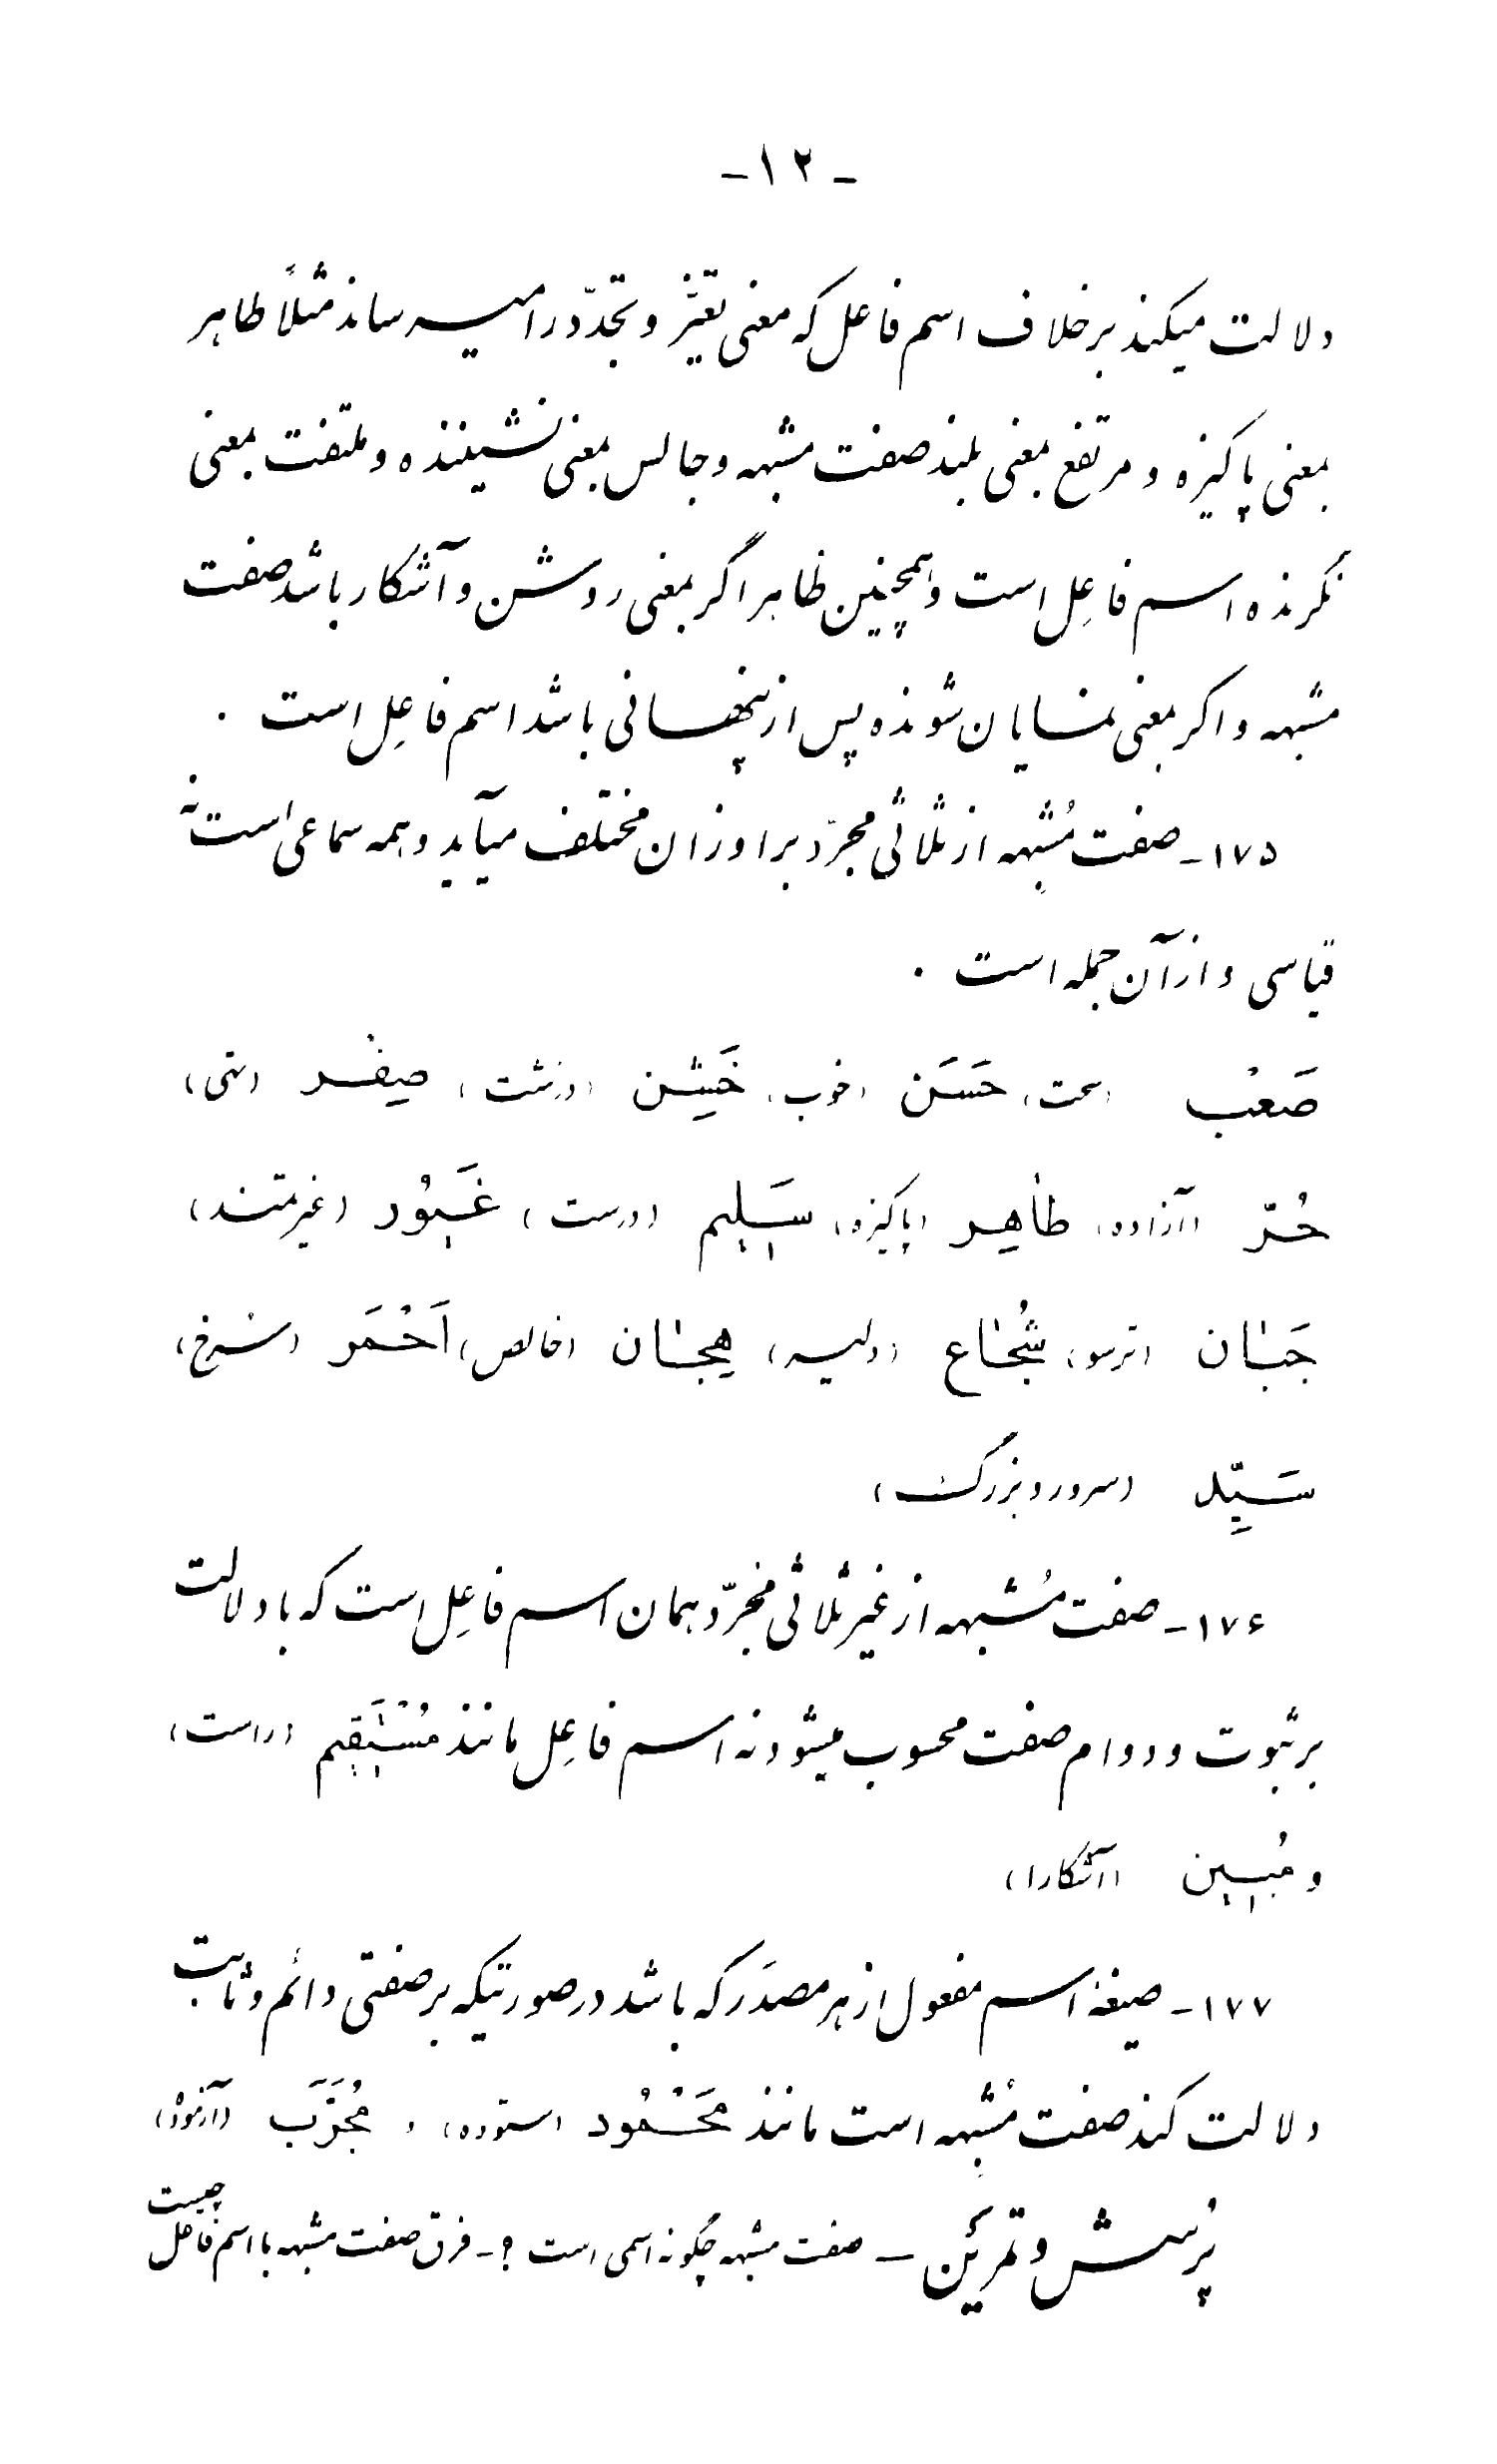 -۱۲-
دلالت میکند برخلاف اسم فاعل که معنی تغیّر و تجدّد را میرساند مثلاً طاهر
بمعنی پاکیزه و مرتفع بمعنی بلند صفت مشبهه و جالس بمعنی نشیننده و ملتفت بمعنی
نگرنده اسم فاعِل است و همچنین ظاهر اگر بمعنی روشن و آشکار باشد صفت
مشبهه و اگر بمعنی نمایان شونده پس از پنهانی باشد اسم فاعِل است .
۱۷۵- صفت مُشبهه از ثلاثی مجرّد بر اوزان مختلف میآید و همه سماعی است نه
قیاسی و از آن جمله است .
صَعْب (سخت) حَسَن (خوب) خَشِن (درشت) صِفْر (تهی)
حُرّ (آزاده) طاهِر (پاکیزه) سَلیم (درست) غَیُور (غیرتمند)
جَبان (ترسو) شُجاع (دلیر) هِجان (خالص) اَحْمَر (سُرخ)
سَیِّد (سرور و بزرگ)
۱۷۶- صفت مُشبهه از غیر ثلاثی مجرّد همان اسم فاعِل است که با دلالت
بر ثبوت و دوام صفت محسوب میشود نه اسم فاعِل مانند مُسْتَقیم (راست)
و مُبین (آشکارا)
۱۷۷- صیغهٔ اسم مفعول از هر مصدَر که باشد در صورتیکه بر صفتی دائم و ثابت
دلالت کند صفت مُشبهه است مانند مَحْمُود (ستوده) و مُجَرَّب (آزموده)
پُرسش و تمرین - صفت مشبهه چگونه اسمی است ؟- فرق صفت مشبهه با اسم فاعل چیست